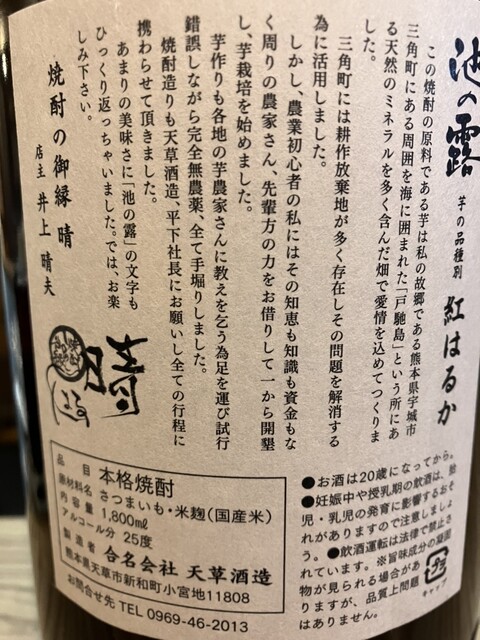 池の露
芋の品種別 紅はるか
この焼酎の原料である芋は私の故郷である熊本県宇城市
三角町にある周囲を海に囲まれた「戸馳島」という所にあ
る天然のミネラルを多く含んだ畑で愛情を込めてつくりま
した。
三角町には耕作放棄地が多く存在しその問題を解消する
為に活用しました。
しかし、農業初心者の私にはその知恵も知識も資金もな
く周りの農家さん、先輩方の力をお借りして一から開墾
し、芋栽培を始めました。
芋作りも各地の芋農家さんに教えを乞う為足を運び試行
錯誤しながら完全無農薬、全て手堀りしました。
焼酎造りも天草酒造、平下社長にお願いし全ての行程に
携わらせて頂きました。
あまりの美味さに「池の露」の文字も
ひっくり返っちゃいました。では、お楽
しみ下さい。
焼酎の御縁 晴
店主 井上 晴夫
晴
品 目 本格焼酎
原材料名 さつまいも・米麹(国産米)
内 容 量 1,800㎖
アルコール分 25度
製造者 合名会社 天草酒造
熊本県天草市新和町小宮地11808
お問合せ先 TEL 0969-46-2013
●お酒は20歳になってから。
●妊娠中や授乳期の飲酒は、胎
児・乳児の発育に影響するおそ
れがありますので注意しましょ
う。●飲酒運転は法律で禁止さ
れています。※旨味成分の凝固
物が見られる場合があ
りますが、品質上問題
はありません。
プラ
キャップ